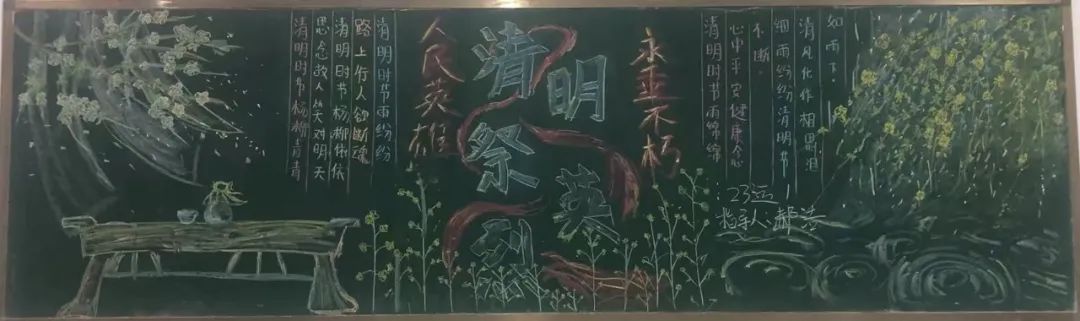 永垂不朽
人民英雄
清明
祭英烈
清明时节雨纷纷
路上行人欲断魂
清明时节杨柳依依
思念故人 天对明天
清明时节杨柳青青
如雨下.
清 化作相思泪
细雨纷纷清明节
不断.
心中平安健康念
清明时节雨绵绵
23运
指导人: 浩